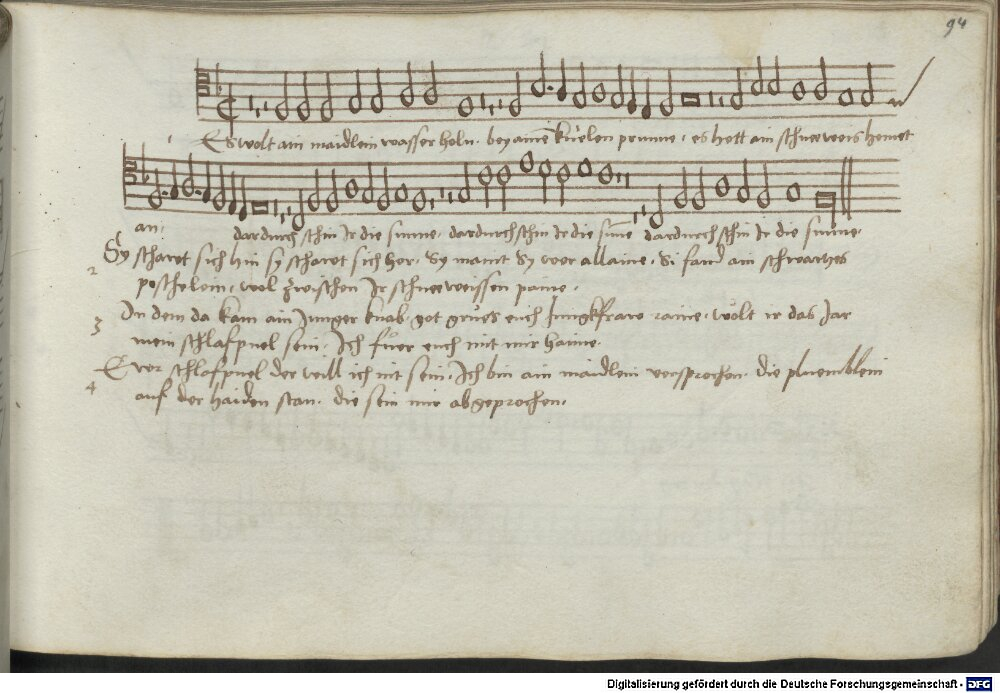 94
Es wolt ain maidlein wasser holn · bey aine͂ küelen prunne · es hett ain schneeweis hemet
an · dardurch schin Ir die sunne · dardurch schin Ir die sune dardurch schin Ir die sunne ·
2 Sy schawt sich hin sy schawt sich her · Sy maint Sy wer allaine · Si fand ain schwartzes
poschelein · wol zwischen Ir schneeweissen paine ·
3 In dem da kam ain Junger knab · got grües euch Jungkfraw raine · wölt ir das Jar
mein schlafpuel sein · Ich füer euch mit mir haime ·
4 Ewer schlafpuel der will ich nit sein · Ich bin ain maidlein versprochen · die pluemblein
auf der haiden stan · die sein mir abgeprochen ·
Digitalisierung gefördert durch die Deutsche Forschungsgemeinschaft - DFG